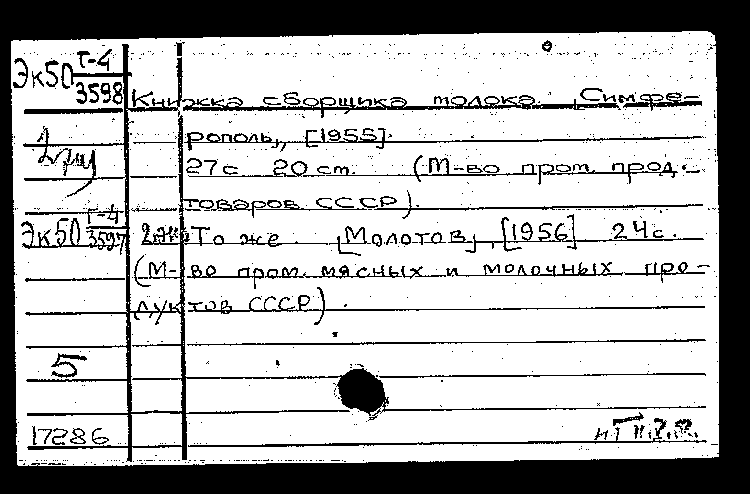 Эк50 Г-4
3598
Книжка сборщика толока. Симфе-
рополь, [1955].
27с 20 ст. (М-во пром. прод.-
товаров СССР).
Эк50 Г-4
3597
2. То же. [Молотов], [1956] 24с.
(М-во пром. мясных и молочных про-
дуктов СССР).
5
17286